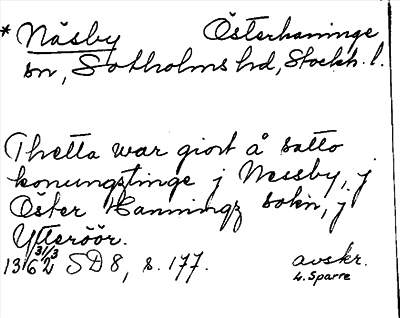 * Näsby Österhaninge
sn, Sotholms hd, Stockh. l.
Thetta war giort å satto
konungztinge j Nessby, j
Öster Hanningz sokn, j
Ytteröör.
13 31/3 62 SD 8, s. 177. avskr.
L. Sparre